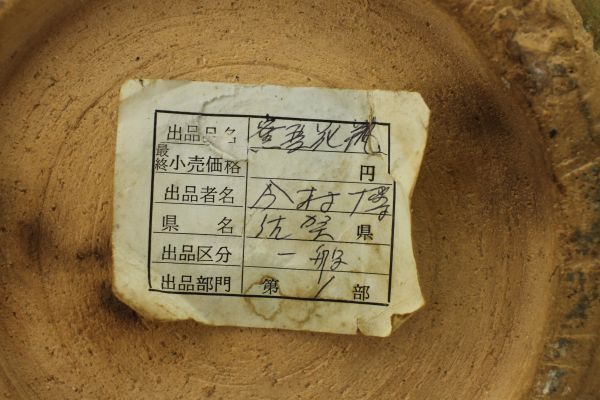 出品品名 窯変花瓶
最終小売価格 円
出品者名 今村博
県名 佐賀県
出品区分 一般
出品部門 第1部